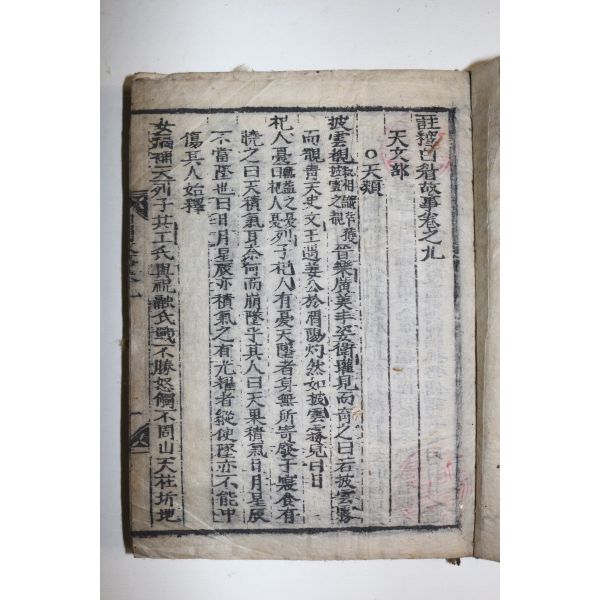 註釋白眉故事卷之九
天文部
○天類
披雲視 晉樂廣美丰姿衛瓘見而奇之曰若披雲霧
而覩青天史文王遇姜公於渭陽灼然如披雲霧見白日
杞人憂 列子杞人有憂天墜者身無所寄發于寢食有
曉之曰天積氣耳奈何而崩墜乎其人曰天果積氣日月星辰
不當墜也曰日月星辰亦積氣之有光耀者縱使墜亦不能中
傷其人始釋
女媧補天列子共工氏與祝融氏戰不勝怒觸不周山天柱折地